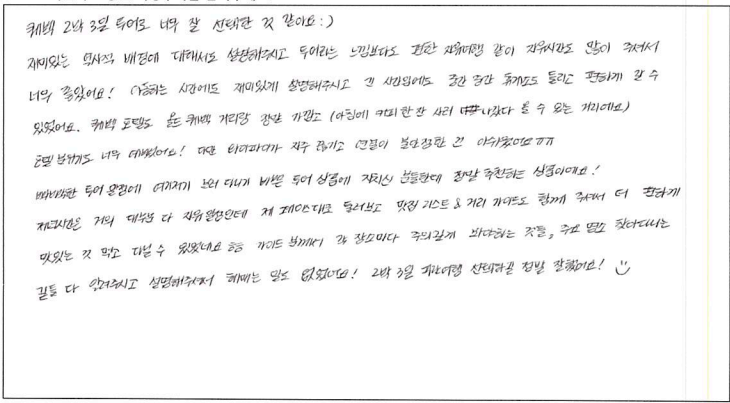 퀘백 2박 3일 투어로 너무 잘 선택한 것 같아요 :)
재미있는 역사적 배경에 대해서도 설명해주시고 투어라는 느낌보다도 편한 자유여행 같이 자유시간도 많이 주셔서
너무 좋았어요! 이동하는 시간에도 재미있게 설명해주시고 긴 시간임에도 중간 중간 휴게소도 들리고 편하게 갈 수
있었어요. 퀘백 호텔도 올드 퀘백 거리랑 정말 가깝고 (아침에 커피 한 잔 사러 나갔다 올 수 있는 거리에요)
호텔 분위기도 너무 예뻤어요! 다만 와이파이가 자주 끊기고 연결이 불안정한 건 아쉬웠어요 ㅠㅠ
빡빡한 투어 일정에 여기저기 눌러 다니기 바쁜 투어 상품에 지치신 분들한테 정말 추천하는 상품이에요!
저녁시간은 거의 대부분 다 자유일정인데 제 페이스대로 둘러보고 맛집 리스트 & 거리 가이드도 함께 주셔서 더 편하게
맛있는 것 먹고 다닐 수 있었네요 ㅎㅎ 가이드 분께서 각 장소마다 주의깊게 봐야하는 것들, 주요 명소 찾아다니는
길들 다 알려주시고 설명해주셔서 헤매는 일도 없었어요! 2박 3일 패키지여행 선택하길 정말 잘했어요!